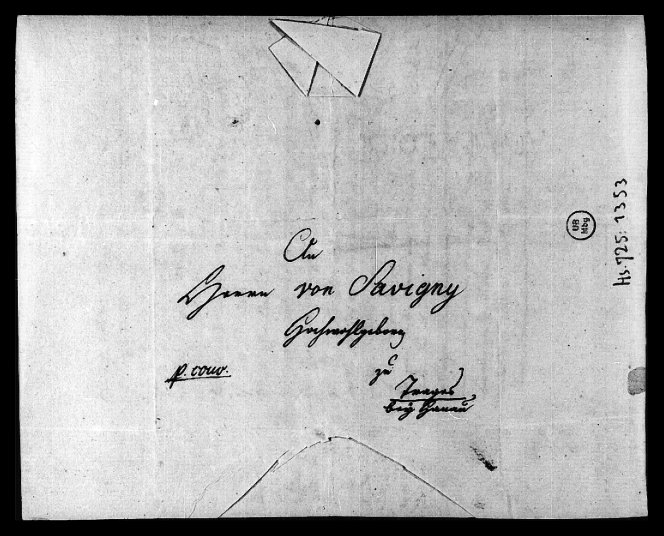 An
Herrn von Savigny
Hochwohlgeborn
p. couv.
zu
Trages
bey Hanau
UB
Mbg
Hs. 725: 1353